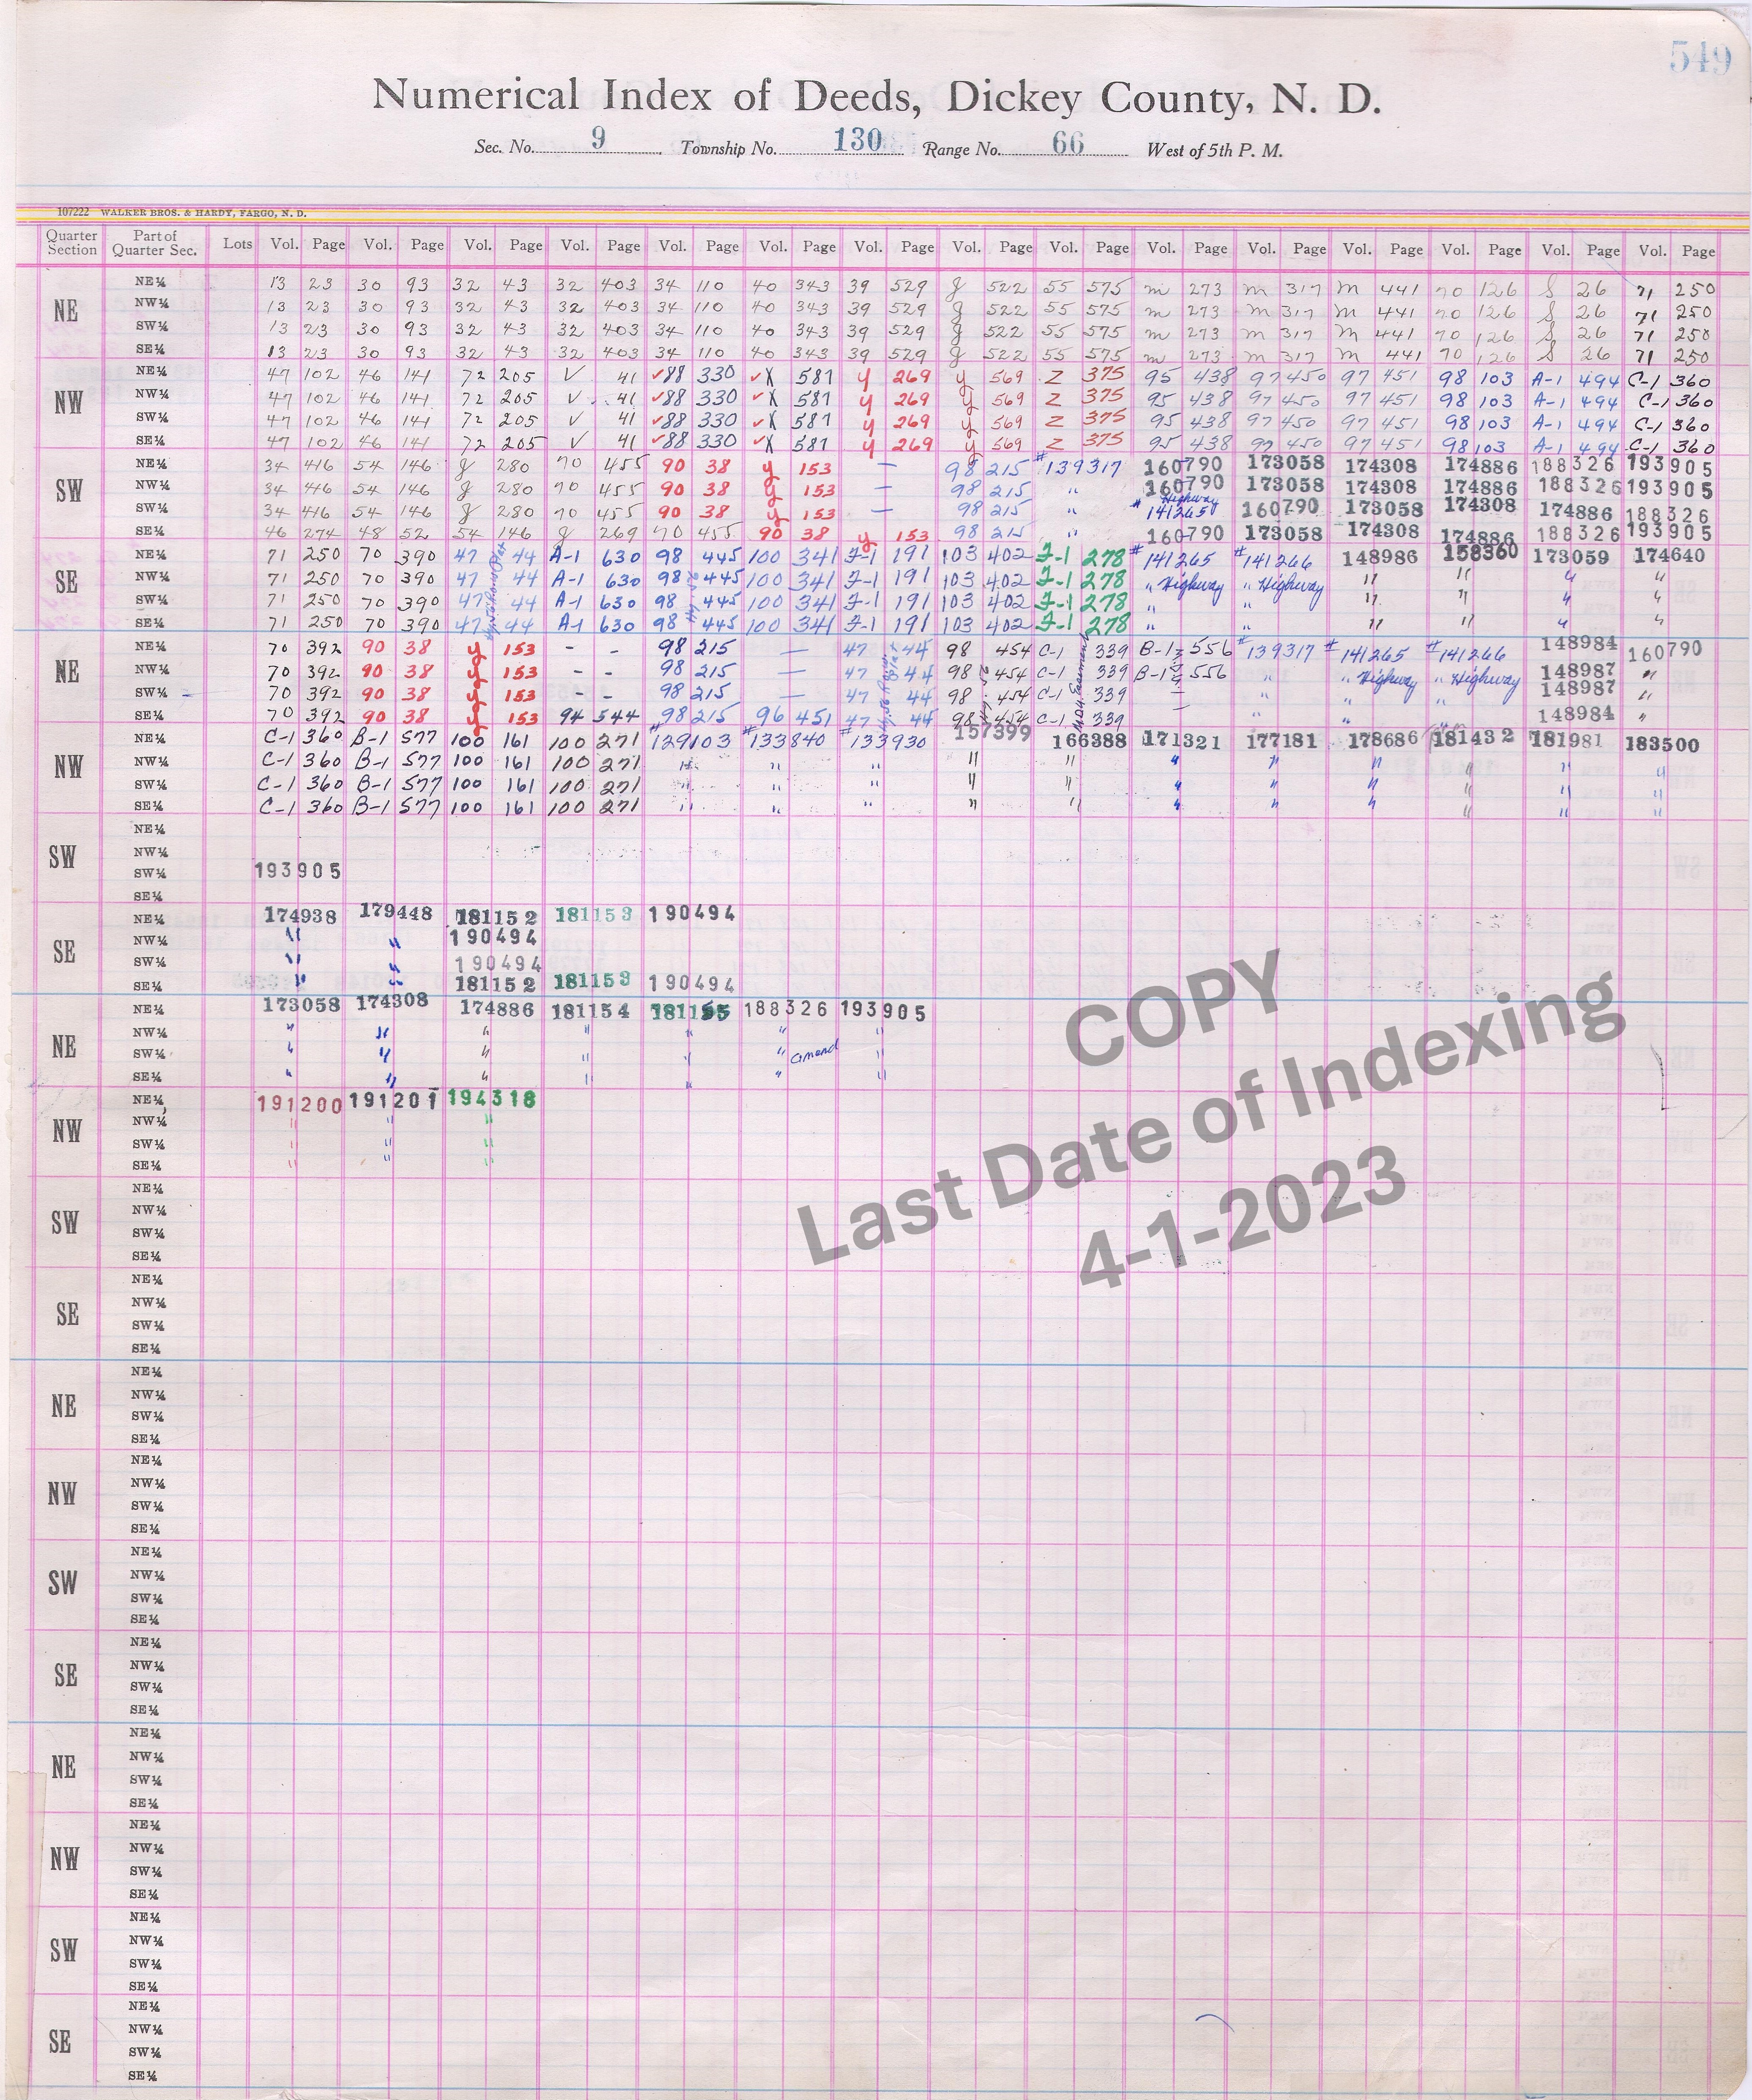 549
Numerical Index of Deeds, Dickey County, N. D.
Sec. No. 9 Township No. 130 Range No. 66 West of 5th P. M.
107222 WALKER BROS. & HARDY, FARGO, N. D.
Quarter Section Part of Quarter Sec. Lots Vol. Page Vol. Page Vol. Page Vol. Page Vol. Page Vol. Page Vol. Page Vol. Page Vol. Page Vol. Page Vol. Page Vol. Page Vol. Page Vol. Page Vol. Page
NE
NE¼ 13 23 30 93 32 43 32 403 34 110 40 343 39 529 g 522 55 575 m 273 m 317 m 441 70 126 S 26 71 250
NW¼ 13 23 30 93 32 43 32 403 34 110 40 343 39 529 g 522 55 575 m 273 m 317 m 441 70 126 S 26 71 250
SW¼ 13 23 30 93 32 43 32 403 34 110 40 343 39 529 g 522 55 575 m 273 m 317 m 441 70 126 S 26 71 250
SE¼ 13 23 30 93 32 43 32 403 34 110 40 343 39 529 g 522 55 575 m 273 m 317 m 441 70 126 S 26 71 250
NW
NE¼ 47 102 46 141 72 205 V 41 ✓88 330 ✓X 581 y 269 y 569 Z 375 95 438 97 450 97 451 98 103 A-1 494 C-1 360
NW¼ 47 102 46 141 72 205 V 41 ✓88 330 ✓X 581 y 269 y 569 Z 375 95 438 97 450 97 451 98 103 A-1 494 C-1 360
SW¼ 47 102 46 141 72 205 V 41 ✓88 330 ✓X 581 y 269 y 569 Z 375 95 438 97 450 97 451 98 103 A-1 494 C-1 360
SE¼ 47 102 46 141 72 205 V 41 ✓88 330 ✓X 581 y 269 y 569 Z 375 95 438 97 450 97 451 98 103 A-1 494 C-1 360
SW
NE¼ 34 416 54 146 g 280 70 455 90 38 y 153 — 98 215 #139317 160790 173058 174308 174886 188326 193905
NW¼ 34 416 54 146 g 280 70 455 90 38 y 153 — 98 215 " 160790 173058 174308 174886 188326 193905
SW¼ 34 416 54 146 g 280 70 455 90 38 y 153 — 98 215 " #141265 Highway 160790 173058 174308 174886 188326
SE¼ 46 274 48 52 54 146 g 269 70 455 90 38 y 153 98 215 " 160790 173058 174308 174886 188326 193905
SE
NE¼ 71 250 70 390 47 44 A-1 630 98 445 100 341 F-1 191 103 402 F-1 278 #141265 #141266 148986 158360 173059 174640
NW¼ 71 250 70 390 47 44 A-1 630 98 445 100 341 F-1 191 103 402 F-1 278 " Highway " Highway " " " "
SW¼ 71 250 70 390 47 44 A-1 630 98 445 100 341 F-1 191 103 402 F-1 278 " " " " " "
SE¼ 71 250 70 390 47 44 A-1 630 98 445 100 341 F-1 191 103 402 F-1 278 " " " "
NE
NE¼ 70 392 90 38 y 153 - - 98 215 — 47 44 98 454 C-1 339 B-1 556 #139317 #141265 #141266 148984 160790
NW¼ 70 392 90 38 y 153 - - 98 215 — 47 44 98 454 C-1 339 B-1 556 " " Highway " Highway 148987 "
SW¼ 70 392 90 38 y 153 - - 98 215 — 47 44 98 454 C-1 339 — " " " 148987 "
SE¼ 70 392 90 38 y 153 94 544 98 215 96 451 47 44 98 454 C-1 339 — " " " 148984 "
Easement
NW
NE¼ C-1 360 B-1 577 100 161 100 271 #129103 #133840 #133930 157399 166388 171321 177181 178686 181432 181981 183500
NW¼ C-1 360 B-1 577 100 161 100 271 " " " " " " " " " " "
SW¼ C-1 360 B-1 577 100 161 100 271 " " " " " " " " " " "
SE¼ C-1 360 B-1 577 100 161 100 271 " " " " " " " " " " "
SW
NE¼
NW¼
SW¼ 193905
SE¼
SE
NE¼ 174938 179448 181152 181153 190494
NW¼ " " 190494
SW¼ " " 190494
SE¼ " " 181152 181153 190494
NE
NE¼ 173058 174308 174886 181154 181155 188326 193905
NW¼ " " " " " " "
SW¼ " " " " " " amend "
SE¼ " " " " " " "
NW
NE¼ 191200 191201 194318
NW¼ " " "
SW¼ " " "
SE¼ " " "
SW
NE¼
NW¼
SW¼
SE¼
SE
NE¼
NW¼
SW¼
SE¼
NE
NE¼
NW¼
SW¼
SE¼
NW
NE¼
NW¼
SW¼
SE¼
SW
NE¼
NW¼
SW¼
SE¼
SE
NE¼
NW¼
SW¼
SE¼
NE
NE¼
NW¼
SW¼
SE¼
NW
NE¼
NW¼
SW¼
SE¼
SW
NE¼
NW¼
SW¼
SE¼
SE
NE¼
NW¼
SW¼
SE¼
COPY
Last Date of Indexing
4-1-2023